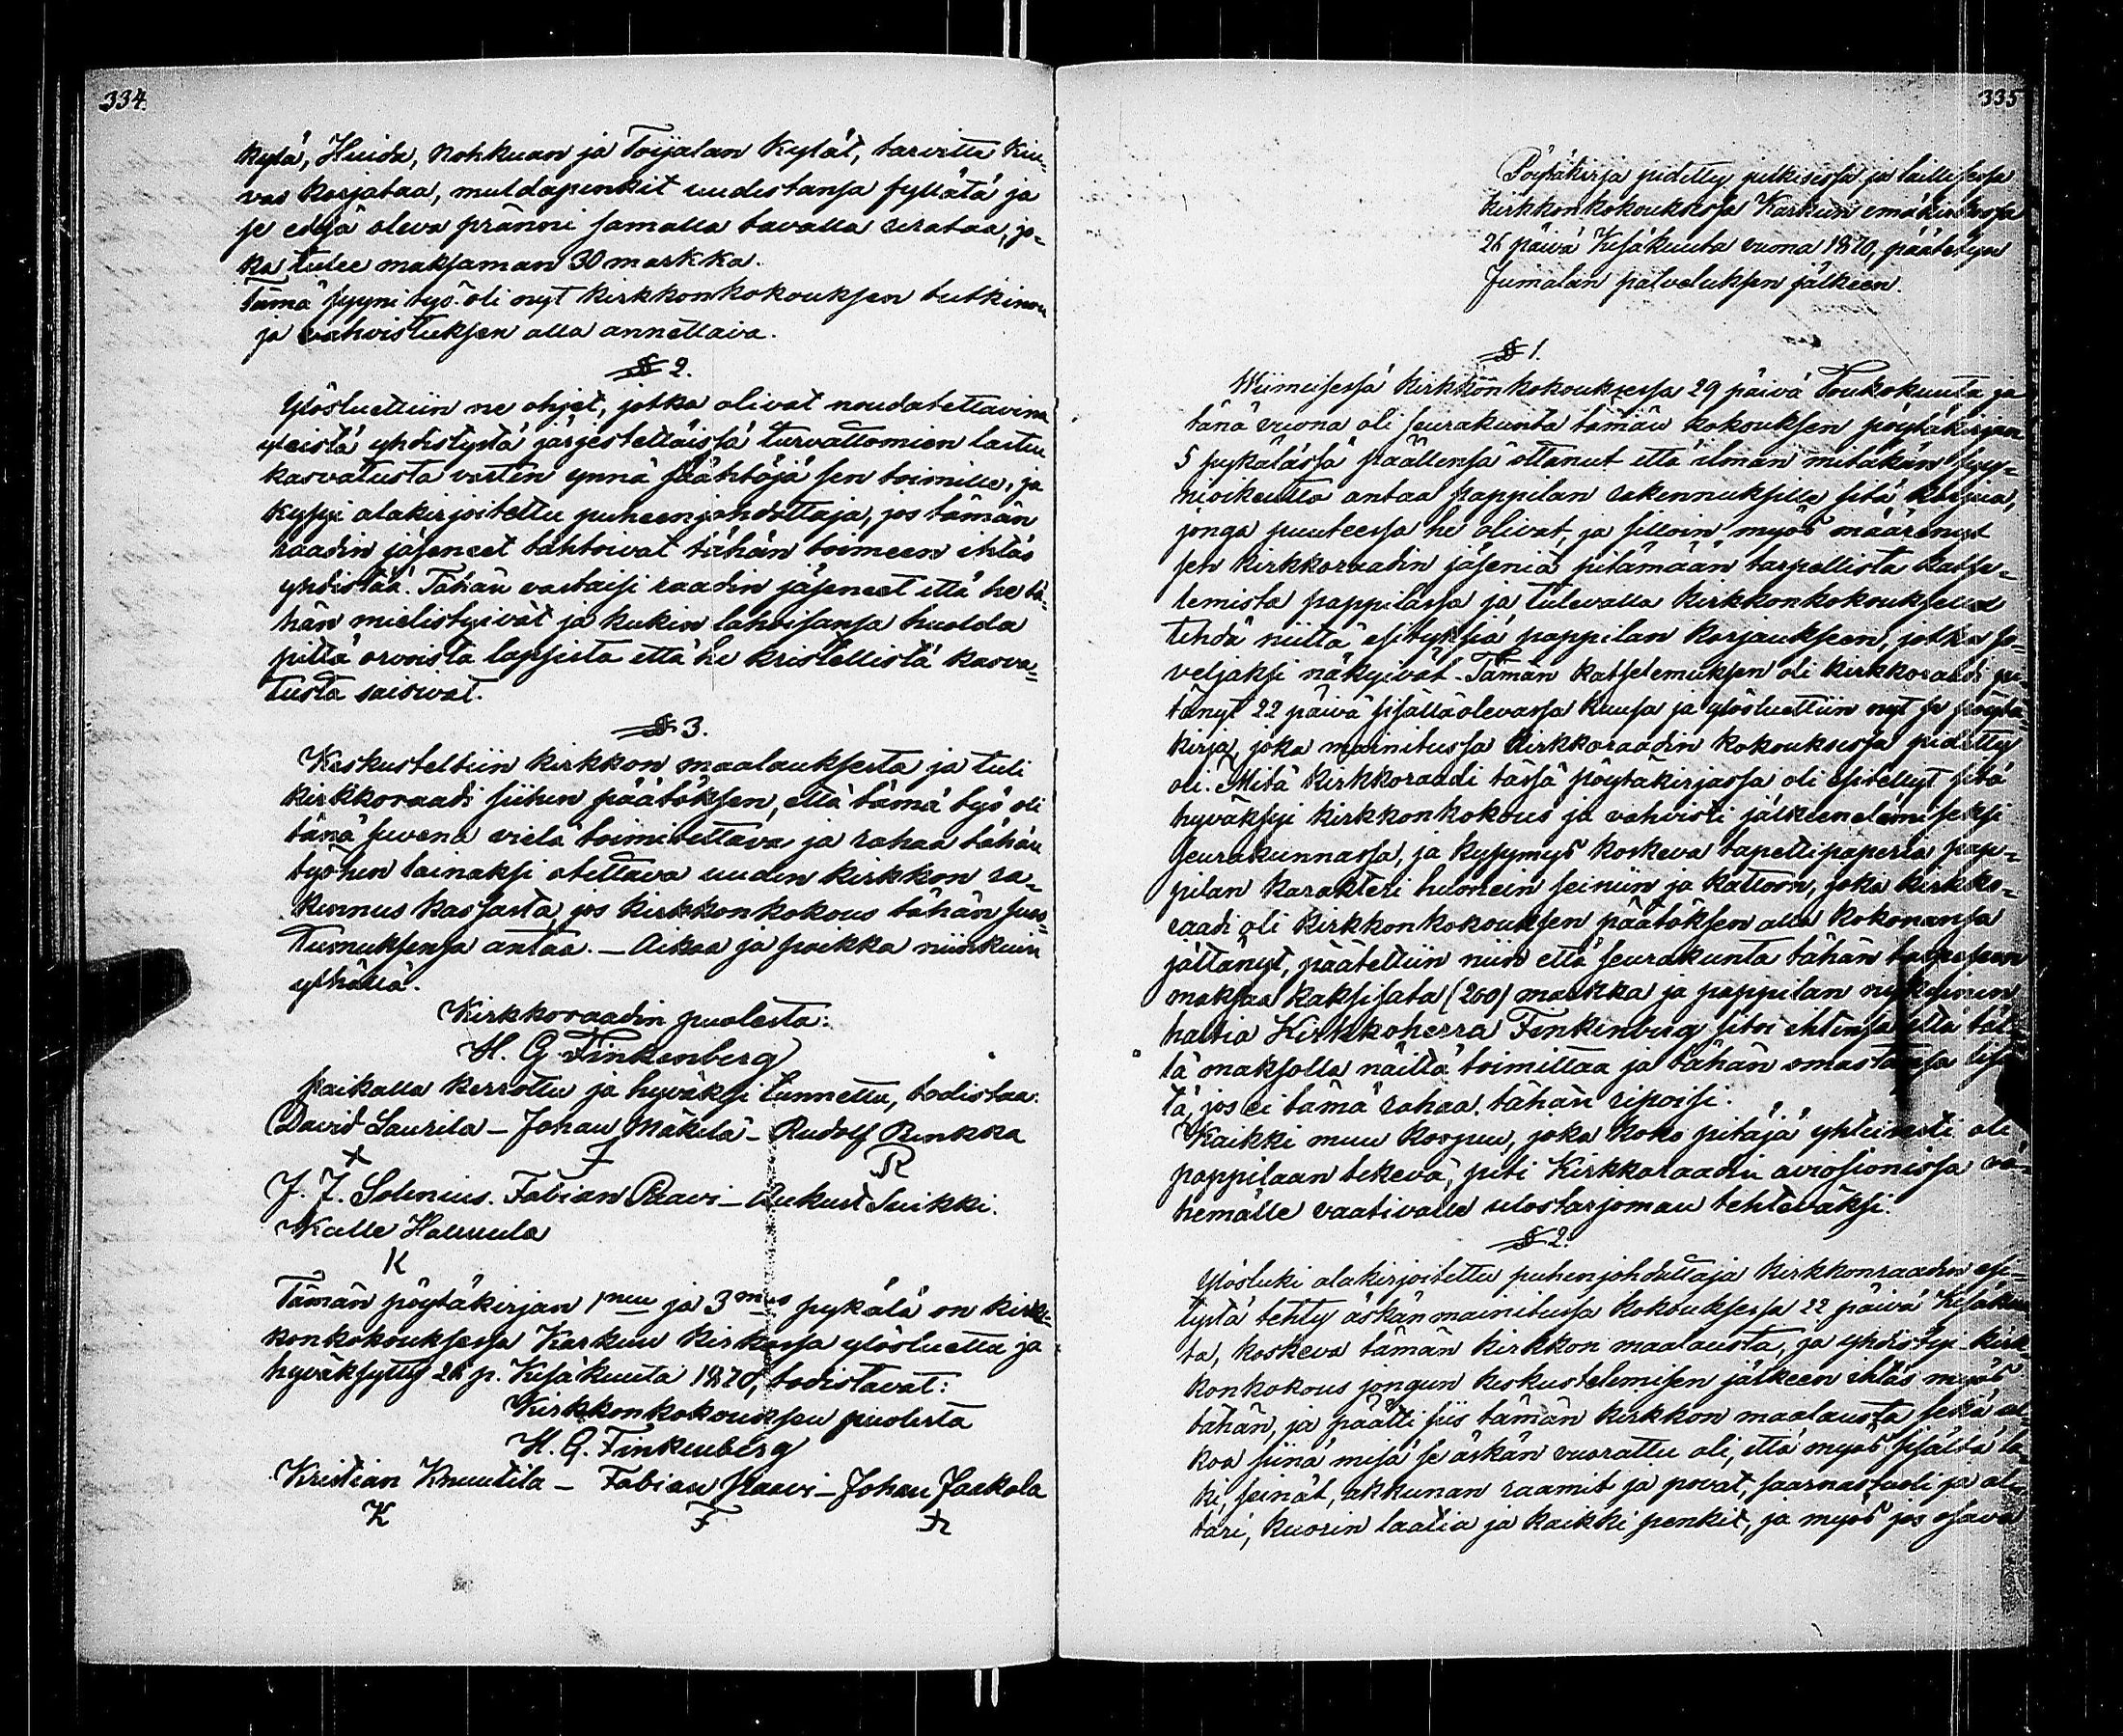 334.
kylä, Huida, Nohkuan ja Toijalan kylät, tarvitte kui-
vas korjataa, muldapenkit uudestansa fyllätä ja
se edesä oleva pränni samalla tavalla perataa, jo-
ka tulee maksaman 30 markka.
Tämä syyni työ oli nyt kirkkonkokouksen tutkinon
ja vahvistuksen alla annettava.
§ 2.
Ylösluettiin ne ohjet, jotka olivat noudatettavina
yleistä yhdistystä järjestettäissä turvattomien lasten
kasvatusta varten ynnä sääntöjä sen toimille, ja
kysyi alakirjoitettu puheenjohdattaja, jos tämän
raadin jäseneet tahtoivat tähän toimeen ihtäs
yhdistää. Tähän vastaisi raadin jäseneet että he tä-
hän mielistyivät ja kukin tahoisansa huolda
pittä orvoista lapsista että he kristellistä kasva-
tusta saisivat.
§ 3.
Keskusteltiin kirkkon maalauksesta ja tuli
kirkkoraadi siihen päätöksen, että tämä työ oli
tänä suvena vielä toimitettava ja rahaa tähän
työhen lainaksi otettava uuden kirkkon ra-
kennus kassasta, jos kirkkonkokous tähän suos-
tumuksensa antaa. — Aikaa ja paikka niinkuin
ylhällä.
Kirkkoraadin puolesta:
H. G. Finkenberg
paikalla kerrottu ja hyväksi tunnettu, todistaa:
David Laurila — Johan Mäkelä — Rudolf Runkka
X F R
J. J. Solenius. Fabian Paavi — Aukust Suikki.
Kalle Haunula
K
Tämän pöytäkirjan 1nen ja 3mas pykälä on kirk-
konkokouksessa Karkun kirkossa ylösluettu ja
hyväksytty 26 p. Kesäkuuta 1870, todistavat:
Kirkkonkokouksen puolesta
H. G. Finkenberg
Kristian Knuutila — Fabian Paavi — Johan Jaakola
K F
335
Pöytäkirja pidetty julkisessa ja laillisessa
kirkkonkokouksssa Karkun emäkirkossa
26 päivä Kesäkuuta vuona 1870, päätetyn
Jumalan palveluksen jälkeen.
§ 1.
Wiimeisessä kirkkonkokouksessa 29 päivä Toukokuuta ja
tänä vuona oli seurakunta tämän kokouksen pöytäkirjan
5 pykälässä päällensä ottanut että ilman mitäkän syy-
nioikeutta antaa pappilan rakennuksille sitä korjua,
jonga puuteessa he olivat, ja silloin myös määrännyt
sen kirkkoraadin jäseniä pitämään tarpellista katse-
lemista pappilassa ja tulevalla kirkkonkokouksella
tehdä niittä esityksiä pappilan korjaukseen, jotka so-
veljaksi näkyivät. Tämän katselemuksen oli kirkkoraadi pi-
tänyt 22 päivä sisälläolevassa kuusa ja ylösluettiin nyt se pöytä-
kirja, joka mainitussa kirkkoraadin kokouksessa pidetty
oli. Mitä kirkkoraadi tässä pöytäkirjassa oli esitellyt sitä
hyväksyi kirkkonkokous ja vahvisti jälkeenelämiseksi
seurakunnassa, ja kysymys koskeva tapettipaperia pap-
pilan karakteri huonein seiniin ja kattoon, joka kirkko-
raadi oli kirkkonkokouksen päätöksen alle kokonansa
jättänyt, päätettiin niin että seurakunta tähän tarpeseen
maksaa kaksisata (200) markka ja pappilan nykyinen
haltia Kirkkoherra Finkenberg sitoi ihtensä että täl-
lä maksolla näittä toimittaa ja tähän omastansa lisä-
tä, jos ei tämä rahaa tähän riipoisi.
Kaikki muu korjuu, joka koko pitäjä yhteisesti oli
pappilaan tekevä, piti Kirkkoraadin avioisionissa vä-
hemälle vaativalle ulostarjoman tehtäväksi.
§ 2.
Ylösluki alakirjoitettu puhenjohdattaja kirkkonraadin esi-
tystä tehty äskän mainitussa kokouksessa 22 päivä Kesäkuu-
ta, koskeva tämän kirkkon maalausta, ja yhdistyi kirk-
konkokous jongun keskustelemisen jälkeen ihtäs myös
tähän, ja päätti siis tämän kirkkon maalausta sekä ul-
koa siinä misä se äskän vuorattu oli, että myös sisältä la-
ki, seinät, akkunan raamit ja povat, saarnastuoli ja al-
tari, kuorin laatia ja kaikki penkit, ja myös jos osava